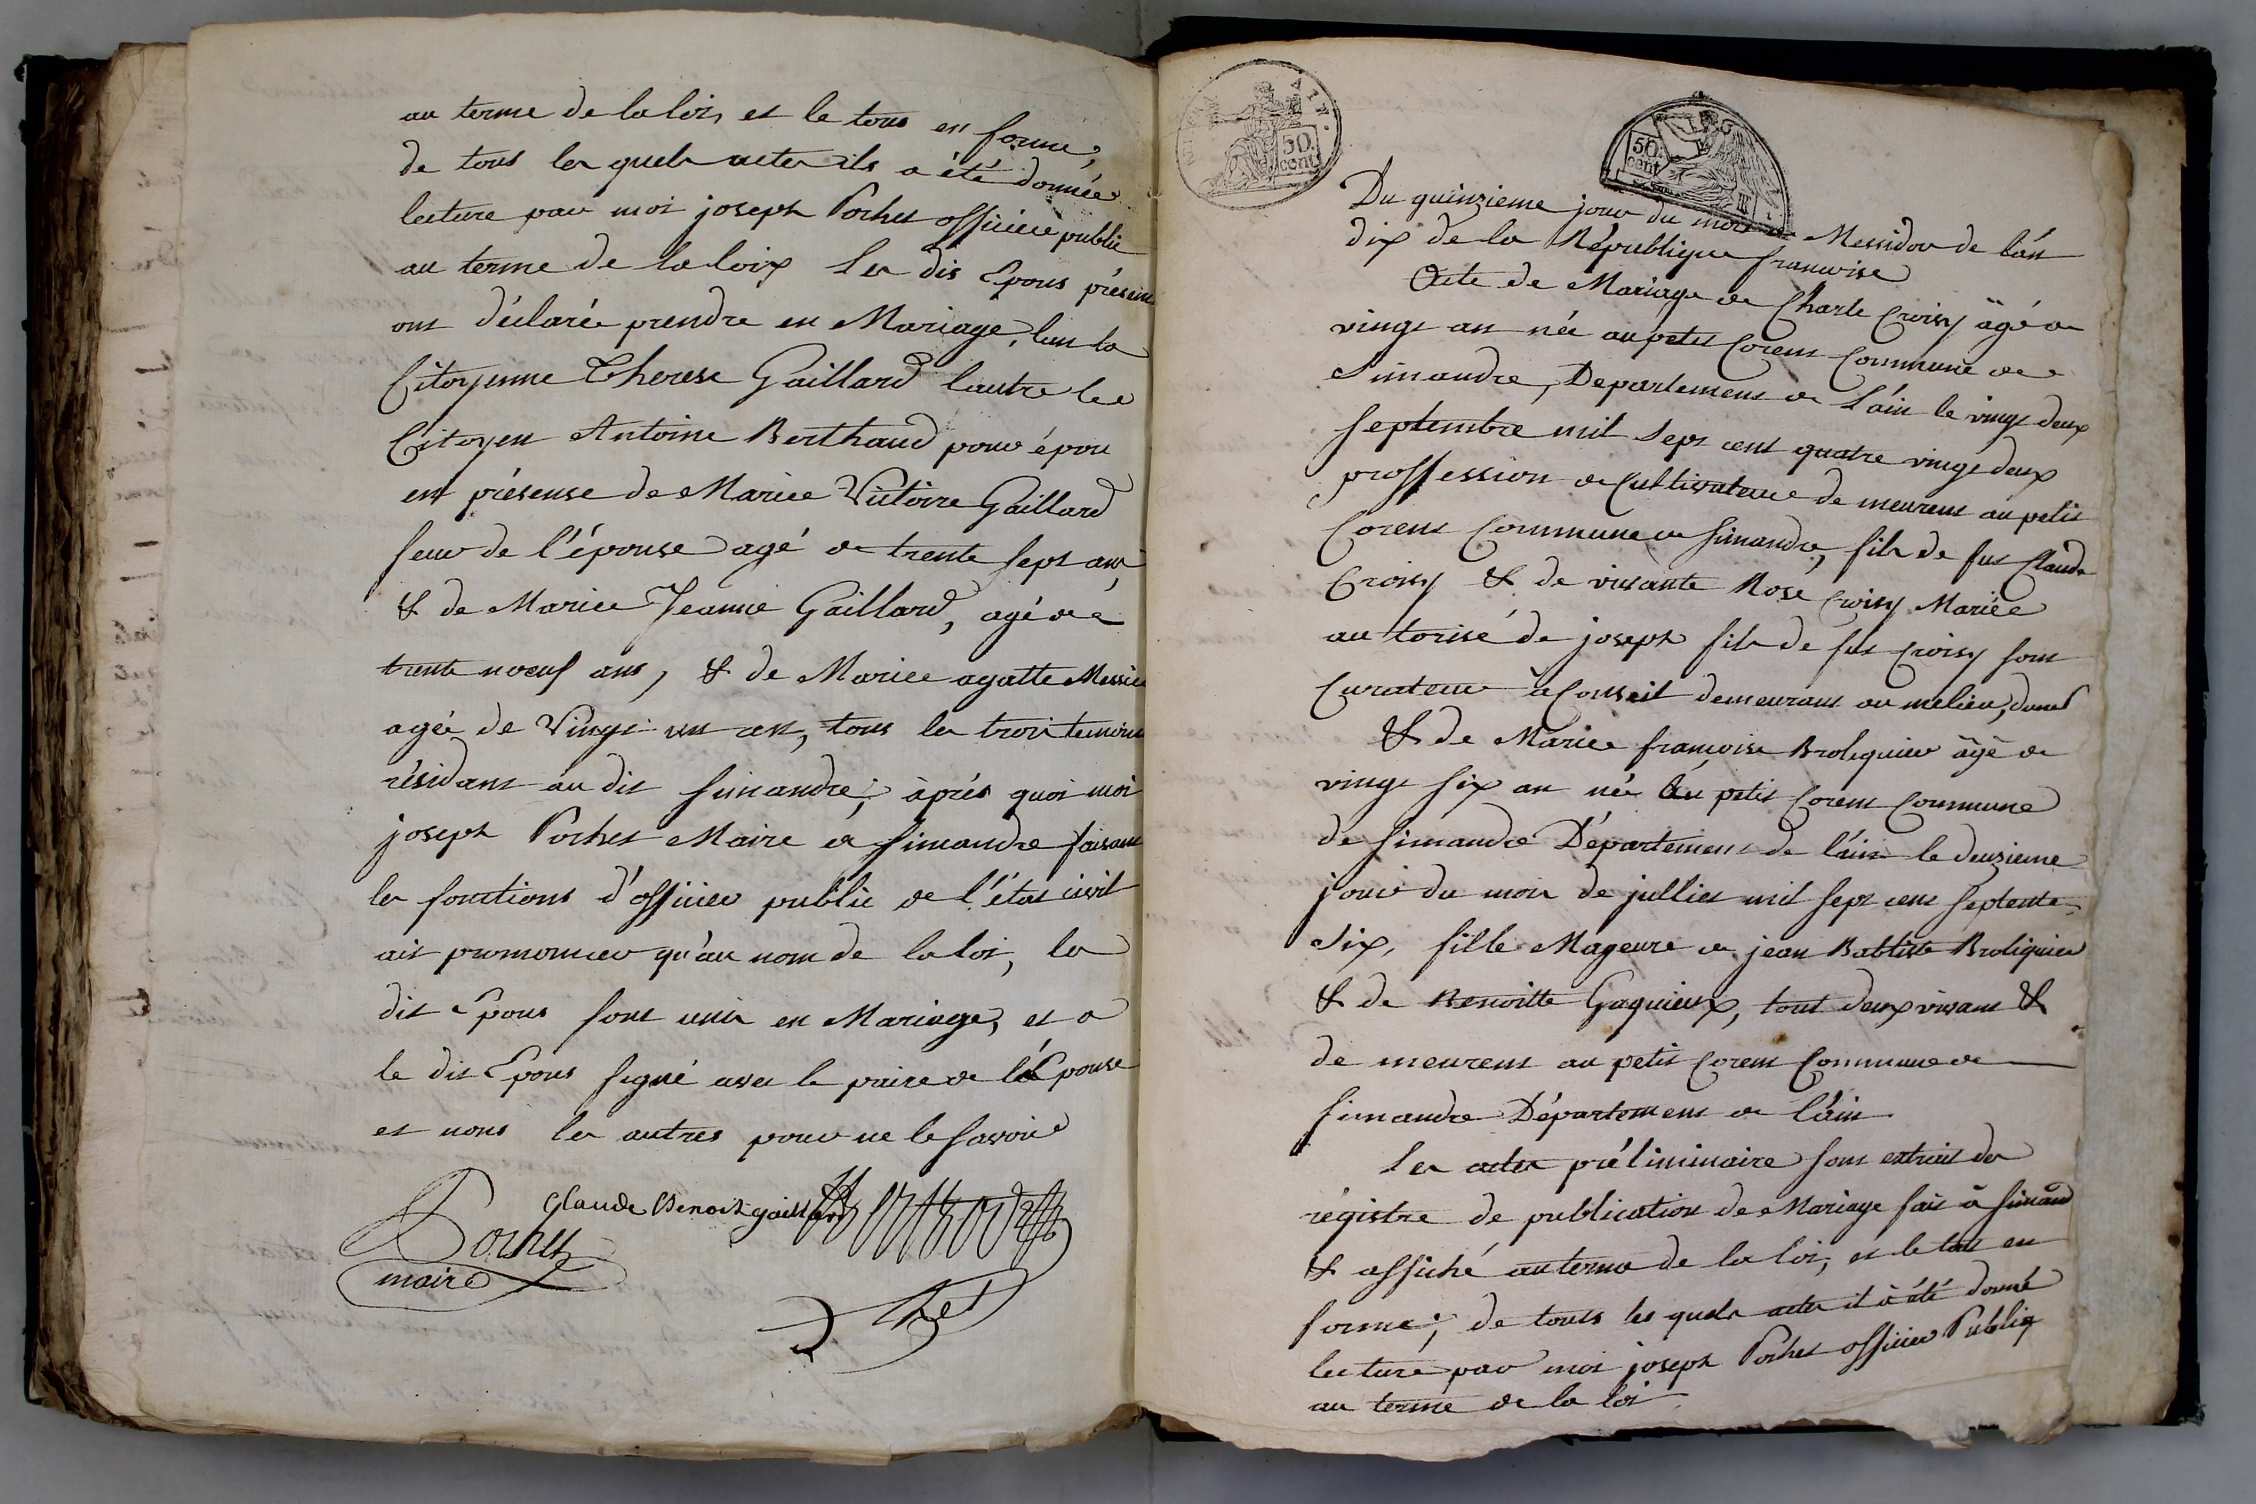 au terme de la loi, et le tous en forme;
de tous les quels actes ils a été donnée
lecture par moi joseph Pochet officier public
au terme de la loix les dis Epous présent
ont déclarée prendre en Mariage, lun la
Citoyenne Therese Gaillard lautre le
Citoyen Antoine Berthaud pour épou
en présense de Mariee Victoire Gaillard
seur de l'épouse agé de trente sept ans
& de Mariee Jeanne Gaillard, agé de
trente noeuf ans, & de Mariee agatte Messie
agée de Vingt un ans, tous les trois temoins
résidant au dit simandre; àprés quoi moi
joseph Pochet Maire de simandre faisant
les fonctions d'officier public de l'état civil
ait promoncer qu'au nom de la loi, les
dit Epous sont unis en Mariage, et a
le dit Epous signé avec le paire de l'Epouse
et nons les autres pour ne le savoir
Claude Benoit gaillard
Pochet
maire
AIN.
50.
cent
50.
cent
Du quinzieme jour du mois de Messidor de l'an
dix de la République francoise
Acte de Mariage de Charle Croisy âgé de
vingt an née au petit Corent Commune de
Simandre, Departement de L'ain le vingt deux
septembre mil sept cent quatre vingt deux
proffession de Cultivateur de meurent au petit
Corent Commune de simandre, fils de fut Claude
Croisy & de vivante Rose Croisy Mariée
autorisé de joseph fils de fut Croisy sont
Curateur à Conseil demeurant au melieu, dune
& de Mariee francoise Broliquier âgé de
vingt six an née au petit Corent Commune
de simandre Département de l'ain le deuzieme
jour du mois de jullier mil sept cent septente
six, fille Mageure de jean Babtiste Broliquier
& de Benoitte Gaguieux, tout deux vivant &
de meurent au petit Corent Commune de
simandre Département de l'ain
Les actes préliminaire sont extrait des
régistre de publication de Mariage fait à simand
& affiché au terme de la loi, et le tous en
forme; de touts les quels actes il à été donné
lecture par moi joseph Pochet officier Publiq
au terme de la loi